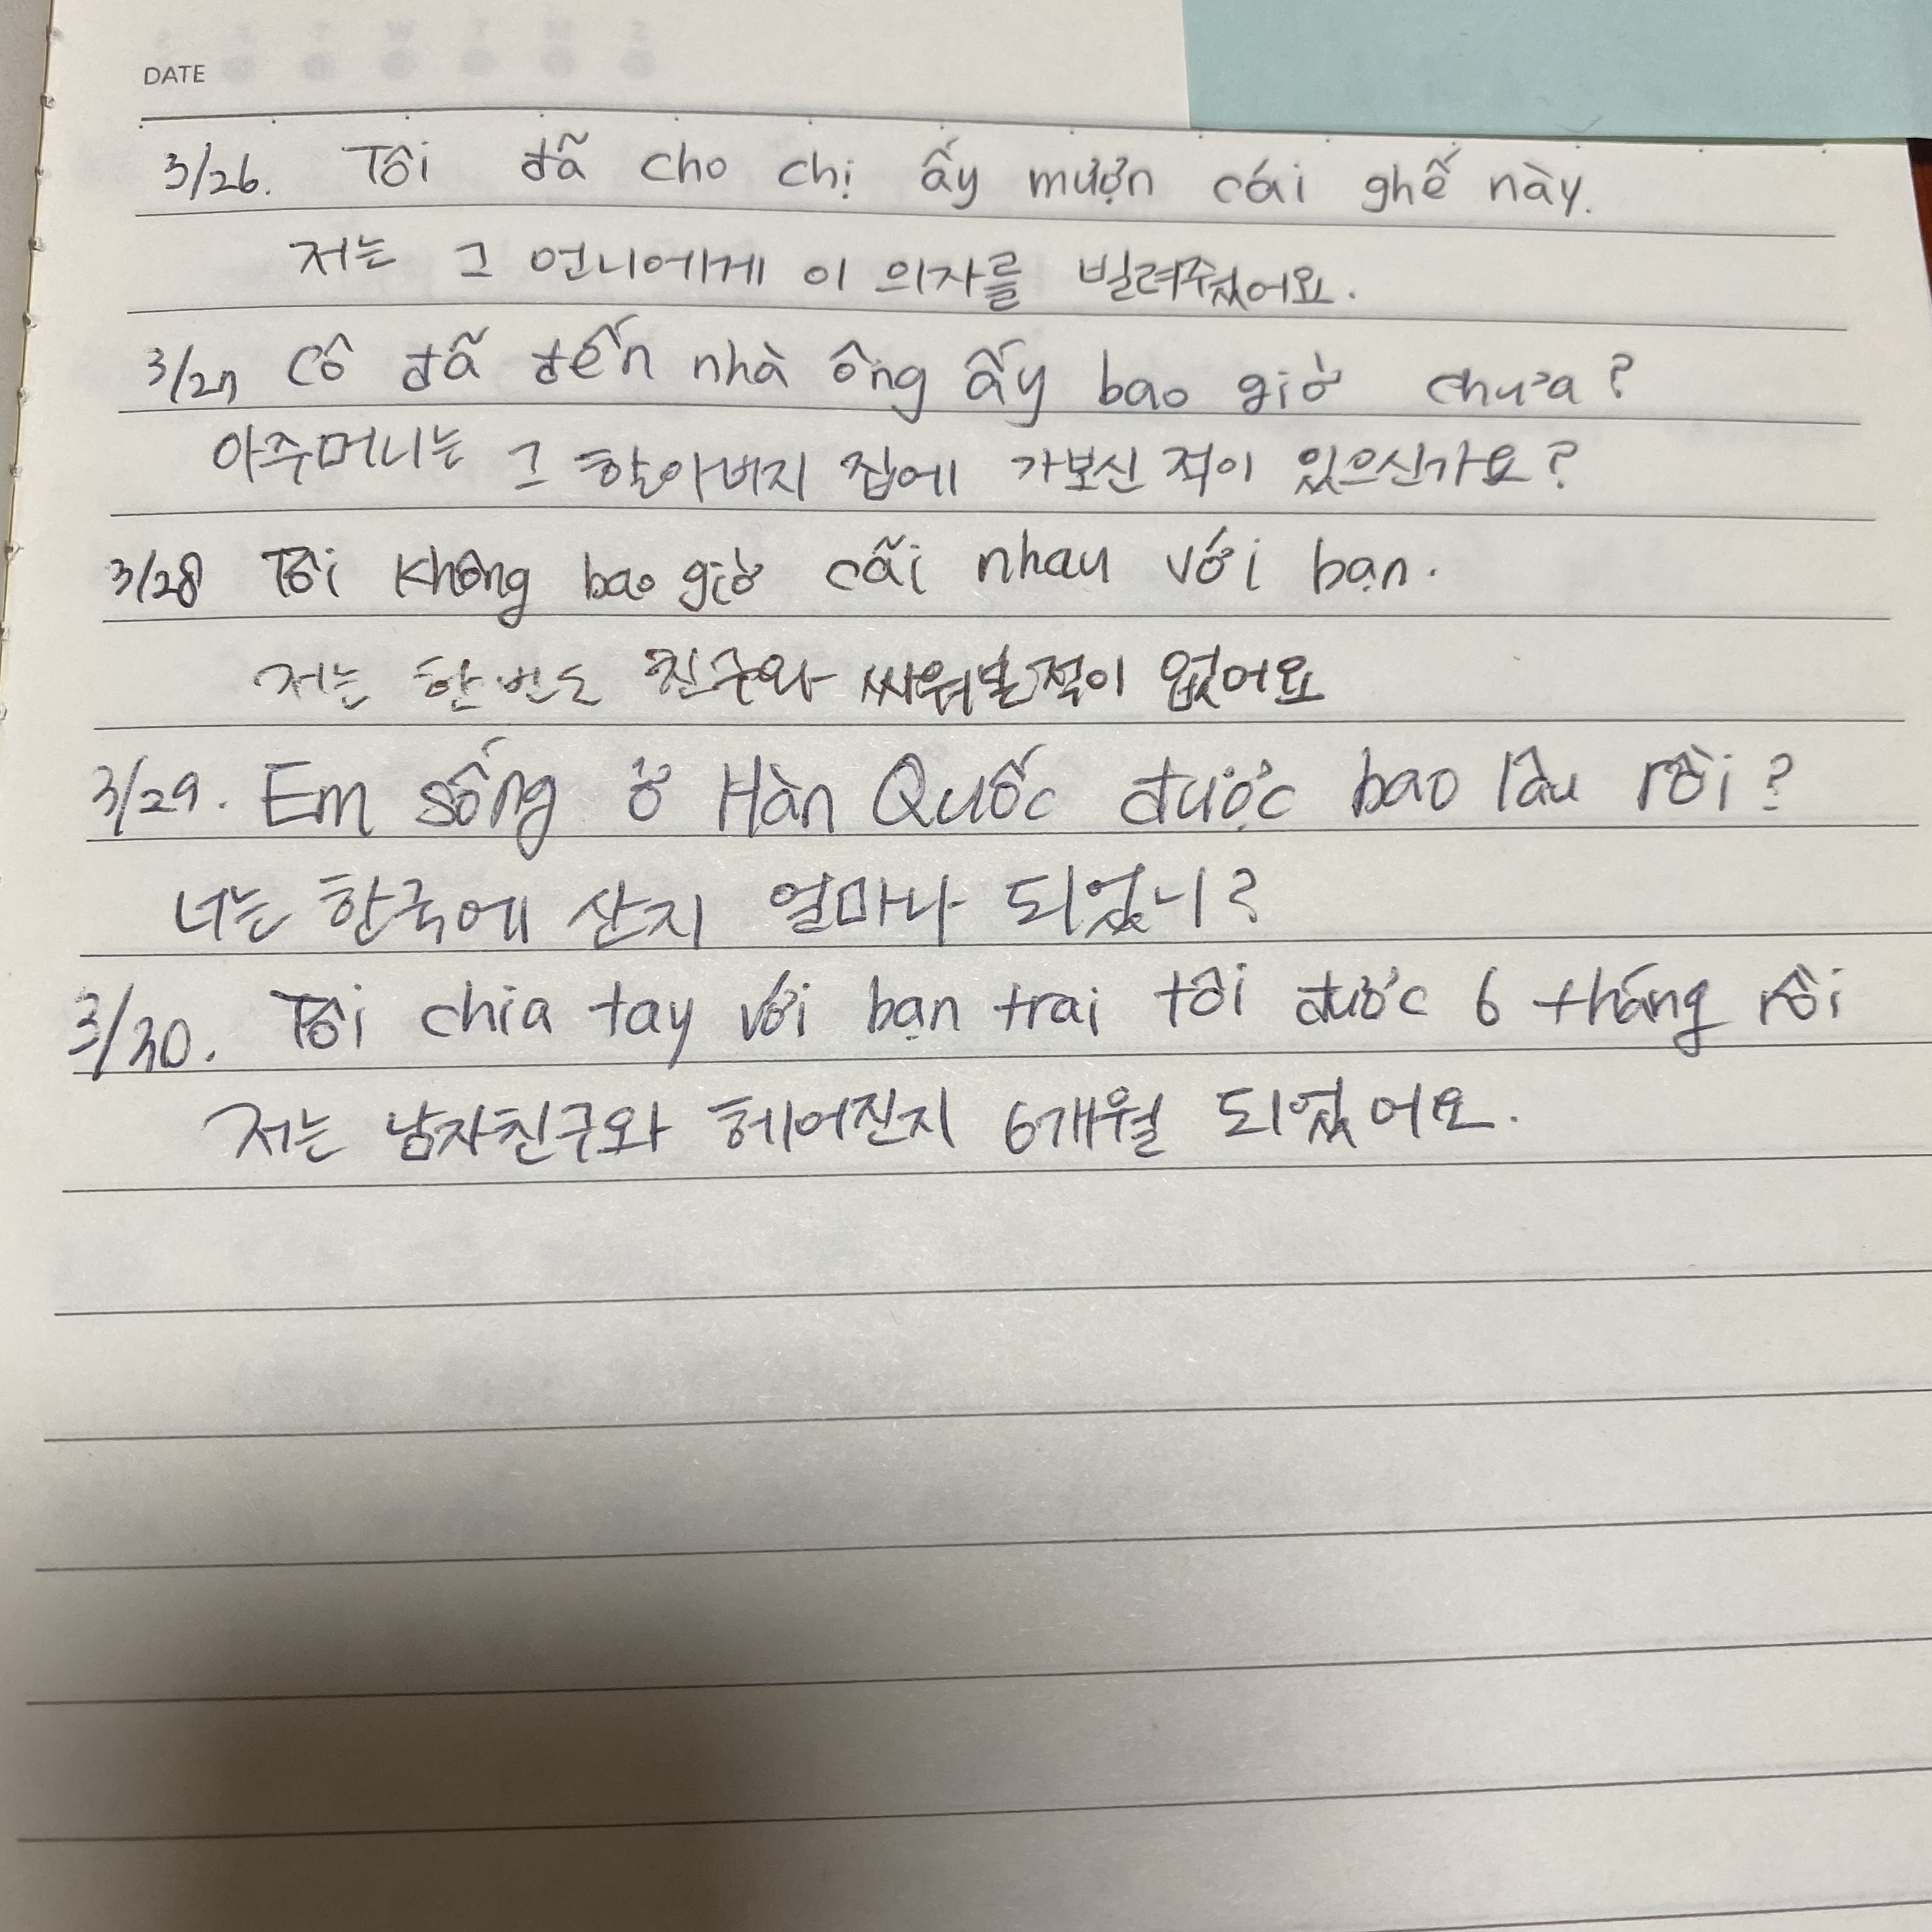 DATE
3/26. Tôi đã cho chị ấy mượn cái ghế này.
저는 그 언니에게 이 의자를 빌려줬어요.
3/27 Cô đã đến nhà ông ấy bao giờ chưa?
아주머니는 그 할아버지 집에 가보신 적이 있으신가요?
3/28 Tôi không bao giờ cãi nhau với bạn.
저는 한번도 친구와 싸워본적이 없어요
3/29. Em sống ở Hàn Quốc được bao lâu rồi?
너는 한국에 산지 얼마나 되었니?
3/30. Tôi chia tay với bạn trai tôi được 6 tháng rồi
저는 남자친구와 헤어진지 6개월 되었어요.